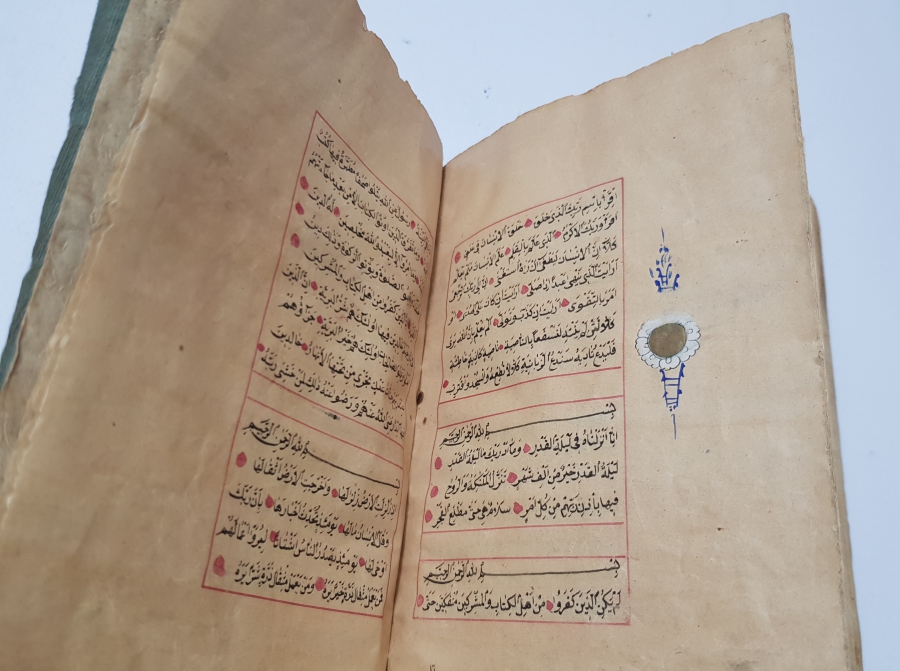 اِقْرَأْ بِاسْمِ رَبِّكَ الَّذِي خَلَقَ خَلَقَ الْاِنْسَانَ مِنْ عَلَقٍ
اقْرَأْ وَرَبُّكَ الْاَكْرَمُ الَّذِي عَلَّمَ بِالْقَلَمِ عَلَّمَ الْاِنْسَانَ مَا لَمْ يَعْلَمْ
كَلَّا اِنَّ الْاِنْسَانَ لَيَطْغَى اَنْ رَآهُ اسْتَغْنَى اِنَّ اِلَى رَبِّكَ الرُّجْعَى
اَرَاَيْتَ الَّذِي يَنْهَى عَبْدًا اِذَا صَلَّى اَرَاَيْتَ اِنْ كَانَ عَلَى الْهُدَى اَوْ
اَمَرَ بِالتَّقْوَى اَرَاَيْتَ اِنْ كَذَّبَ وَتَوَلَّى اَلَمْ يَعْلَمْ بِاَنَّ اللهَ يَرَى
كَلَّا لَئِنْ لَمْ يَنْتَهِ لَنَسْفَعًا بِالنَّاصِيَةِ نَاصِيَةٍ كَاذِبَةٍ خَاطِئَةٍ
فَلْيَدْعُ نَادِيَهُ سَنَدْعُ الزَّبَانِيَةَ كَلَّا لَا تُطِعْهُ وَاسْجُدْ وَاقْتَرِبْ
بِسْمِ اللهِ الرَّحْمٰنِ الرَّحِيمِ
اِنَّا اَنْزَلْنَاهُ فِي لَيْلَةِ الْقَدْرِ وَمَا اَدْرَاكَ مَا لَيْلَةُ الْقَدْرِ
لَيْلَةُ الْقَدْرِ خَيْرٌ مِنْ اَلْفِ شَهْرٍ تَنَزَّلُ الْمَلٰئِكَةُ وَالرُّوحُ
فِيهَا بِاِذْنِ رَبِّهِمْ مِنْ كُلِّ اَمْرٍ سَلَامٌ هِيَ حَتَّى مَطْلَعِ الْفَجْرِ
بِسْمِ اللهِ الرَّحْمٰنِ الرَّحِيمِ
لَمْ يَكُنِ الَّذِينَ كَفَرُوا مِنْ اَهْلِ الْكِتَابِ وَالْمُشْرِكِينَ مُنْفَكِّينَ حَتَّى
رَسُولٌ مِنَ اللهِ يَتْلُو صُحُفًا مُطَهَّرَةً فِيهَا كُتُبٌ
الَّذِينَ اُوتُوا الْكِتَابَ اِلَّا مِنْ بَعْدِ مَا جَاءَتْهُمُ
اِلَّا لِيَعْبُدُوا اللهَ مُخْلِصِينَ لَهُ الدِّينَ
الصَّلٰوةَ وَيُؤْتُوا الزَّكٰوةَ وَذٰلِكَ دِينُ
كَفَرُوا مِنْ اَهْلِ الْكِتَابِ وَالْمُشْرِكِينَ
فِيهَا اُولٰئِكَ هُمْ شَرُّ الْبَرِيَّةِ اِنَّ الَّذِينَ
اُولٰئِكَ هُمْ خَيْرُ الْبَرِيَّةِ جَزَاؤُهُمْ
تَجْرِي مِنْ تَحْتِهَا الْاَنْهَارُ خَالِدِينَ
رَضِيَ اللهُ عَنْهُمْ وَرَضُوا عَنْهُ ذٰلِكَ لِمَنْ خَشِيَ رَبَّهُ
بِسْمِ اللهِ الرَّحْمٰنِ الرَّحِيمِ
اِذَا زُلْزِلَتِ الْاَرْضُ زِلْزَالَهَا وَاَخْرَجَتِ الْاَرْضُ اَثْقَالَهَا
وَقَالَ الْاِنْسَانُ مَا لَهَا يَوْمَئِذٍ تُحَدِّثُ اَخْبَارَهَا بِاَنَّ رَبَّكَ
اَوْحَى لَهَا يَوْمَئِذٍ يَصْدُرُ النَّاسُ اَشْتَاتًا لِيُرَوْا اَعْمَالَهُمْ
فَمَنْ يَعْمَلْ مِثْقَالَ ذَرَّةٍ خَيْرًا يَرَهُ وَمَنْ يَعْمَلْ مِثْقَالَ ذَرَّةٍ شَرًّا يَرَهُ